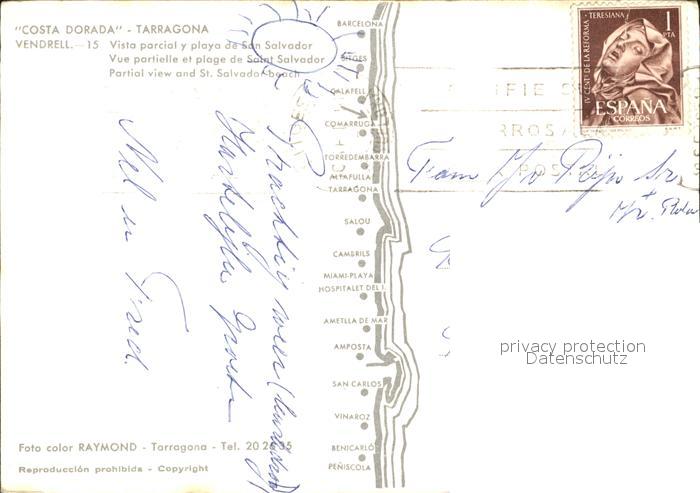 "COSTA DORADA" - TARRAGONA
VENDRELL.-15 Vista parcial y playa de San Salvador
Vue partielle et plage de Saint Salvador
Partial view and St. Salvador beach
BARCELONA
SITGES
CALAFELL
COMARRUGA
TORREDEMBARRA
ALTAFULLA
TARRAGONA
SALOU
CAMBRILS
MIAMI-PLAYA
HOSPITALET DEL I.
AMETLLA DE MAR
AMPOSTA
SAN CARLOS
VINAROZ
BENICARLÓ
PEÑISCOLA
IV CENT. DE LA REFORMA TERESIANA
1
PTA
ESPAÑA
CORREOS
Fam
Sr.
+
Prachtig weer
Hartelijke groeten
Nel en Fred.
privacy protection
Datenschutz
Foto color RAYMOND - Tarragona - Tel. 20 26 35
Reproducción prohibida - Copyright